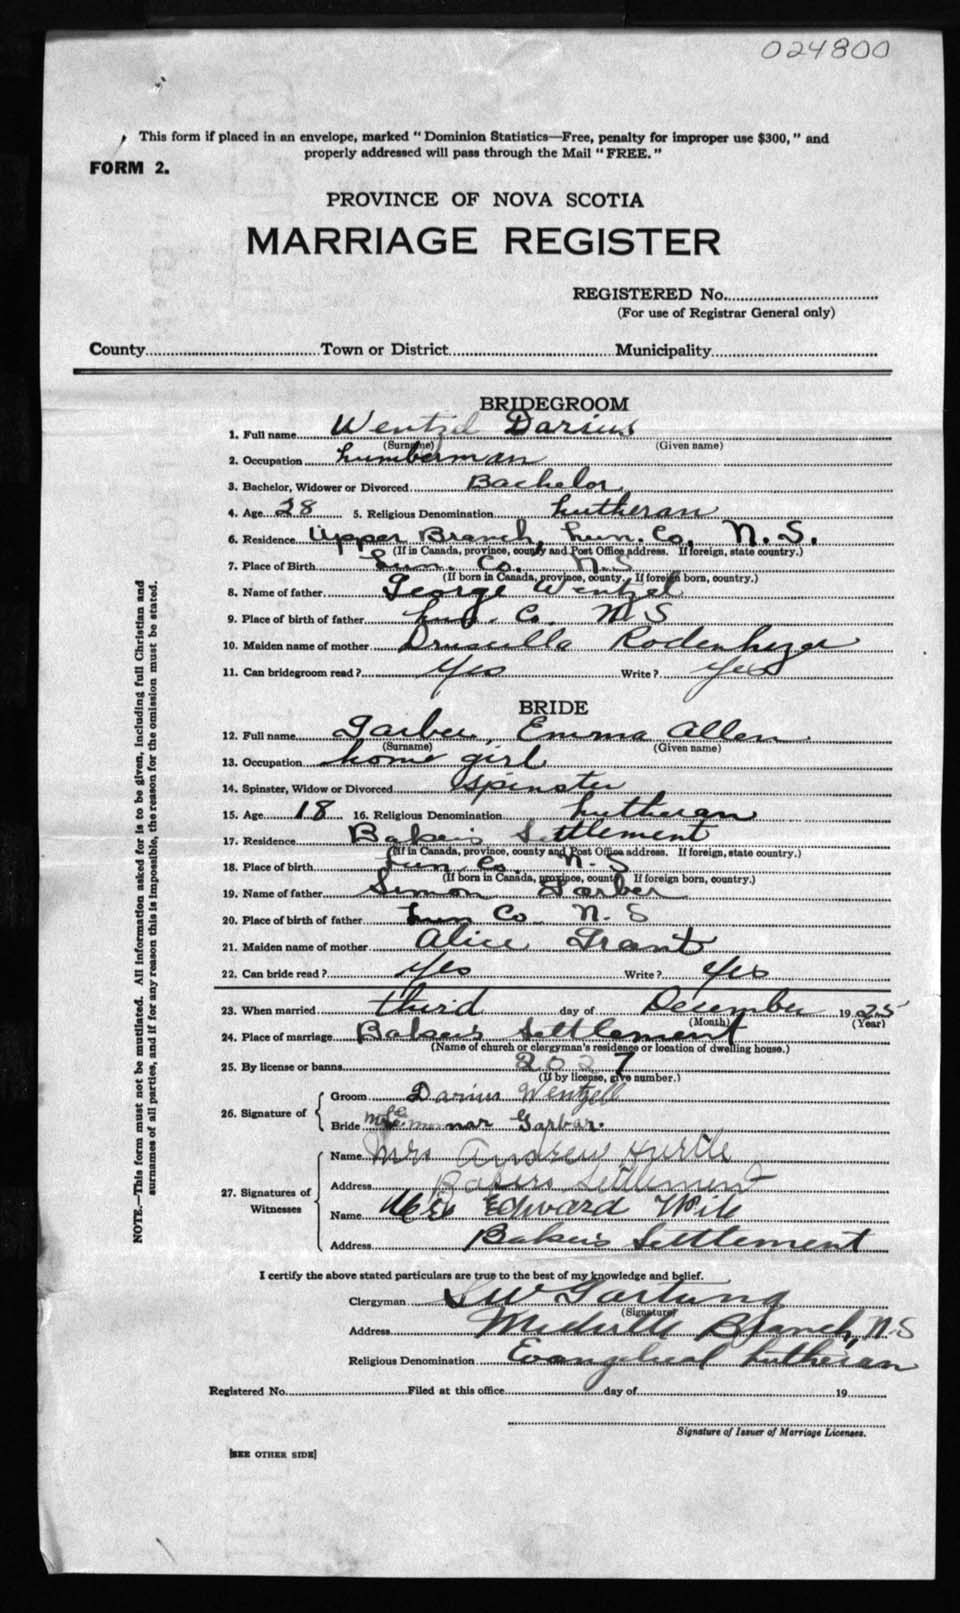 024800
This form if placed in an envelope, marked "Dominion Statistics—Free, penalty for improper use $300," and
properly addressed will pass through the Mail "FREE."
FORM 2.
PROVINCE OF NOVA SCOTIA
MARRIAGE REGISTER
REGISTERED No.
(For use of Registrar General only)
County Town or District Municipality
BRIDEGROOM
1. Full name Wentzel Darius
(Surname) (Given name)
2. Occupation Lumberman
3. Bachelor, Widower or Divorced Bachelor
4. Age 28 5. Religious Denomination Lutheran
6. Residence Upper Branch, Lun. Co, N.S.
(If in Canada, province, county and Post Office address. If foreign, state country.)
7. Place of Birth Lun. Co. N.S
(If born in Canada, province, county. If foreign born, country.)
8. Name of father George Wentzel
9. Place of birth of father Lun. Co. N S
10. Maiden name of mother Druscilla Rodenhizer
11. Can bridegroom read? Yes Write? Yes
BRIDE
12. Full name Garber, Emma Allen
(Surname) (Given name)
13. Occupation home girl
14. Spinster, Widow or Divorced Spinster
15. Age 18 16. Religious Denomination Lutheran
17. Residence Bakers Settlement
(If in Canada, province, county and Post Office address. If foreign, state country.)
18. Place of birth Lun Co. N.S
(If born in Canada, province, county If foreign born, country.)
19. Name of father Simon Garber
20. Place of birth of father Lun Co N.S
21. Maiden name of mother Alice Grant
22. Can bride read? Yes Write? Yes
23. When married third day of December 1925
(Month) (Year)
24. Place of marriage Bakers Settlement
(Name of church or clergyman's residence or location of dwelling house.)
25. By license or banns 2027
(If by license, give number.)
26. Signature of Groom Darius Wentzell
Bride Garbar.
27. Signatures of Witnesses Name Mrs Andrew Hirtle
Address Bakers Settlement
Name Mrs Edward Wile
Address Bakers Settlement
I certify the above stated particulars are true to the best of my knowledge and belief.
Clergyman Gartung
(Signature)
Address Branch, N.S
Religious Denomination Evangelical Lutheran
Registered No. Filed at this office day of 19
Signature of Issuer of Marriage Licenses.
[SEE OTHER SIDE]
NOTE.—This form must not be mutilated. All information asked for is to be given, including full Christian and
surnames of all parties, and if for any reason this is impossible, the reason for the omission must be stated.